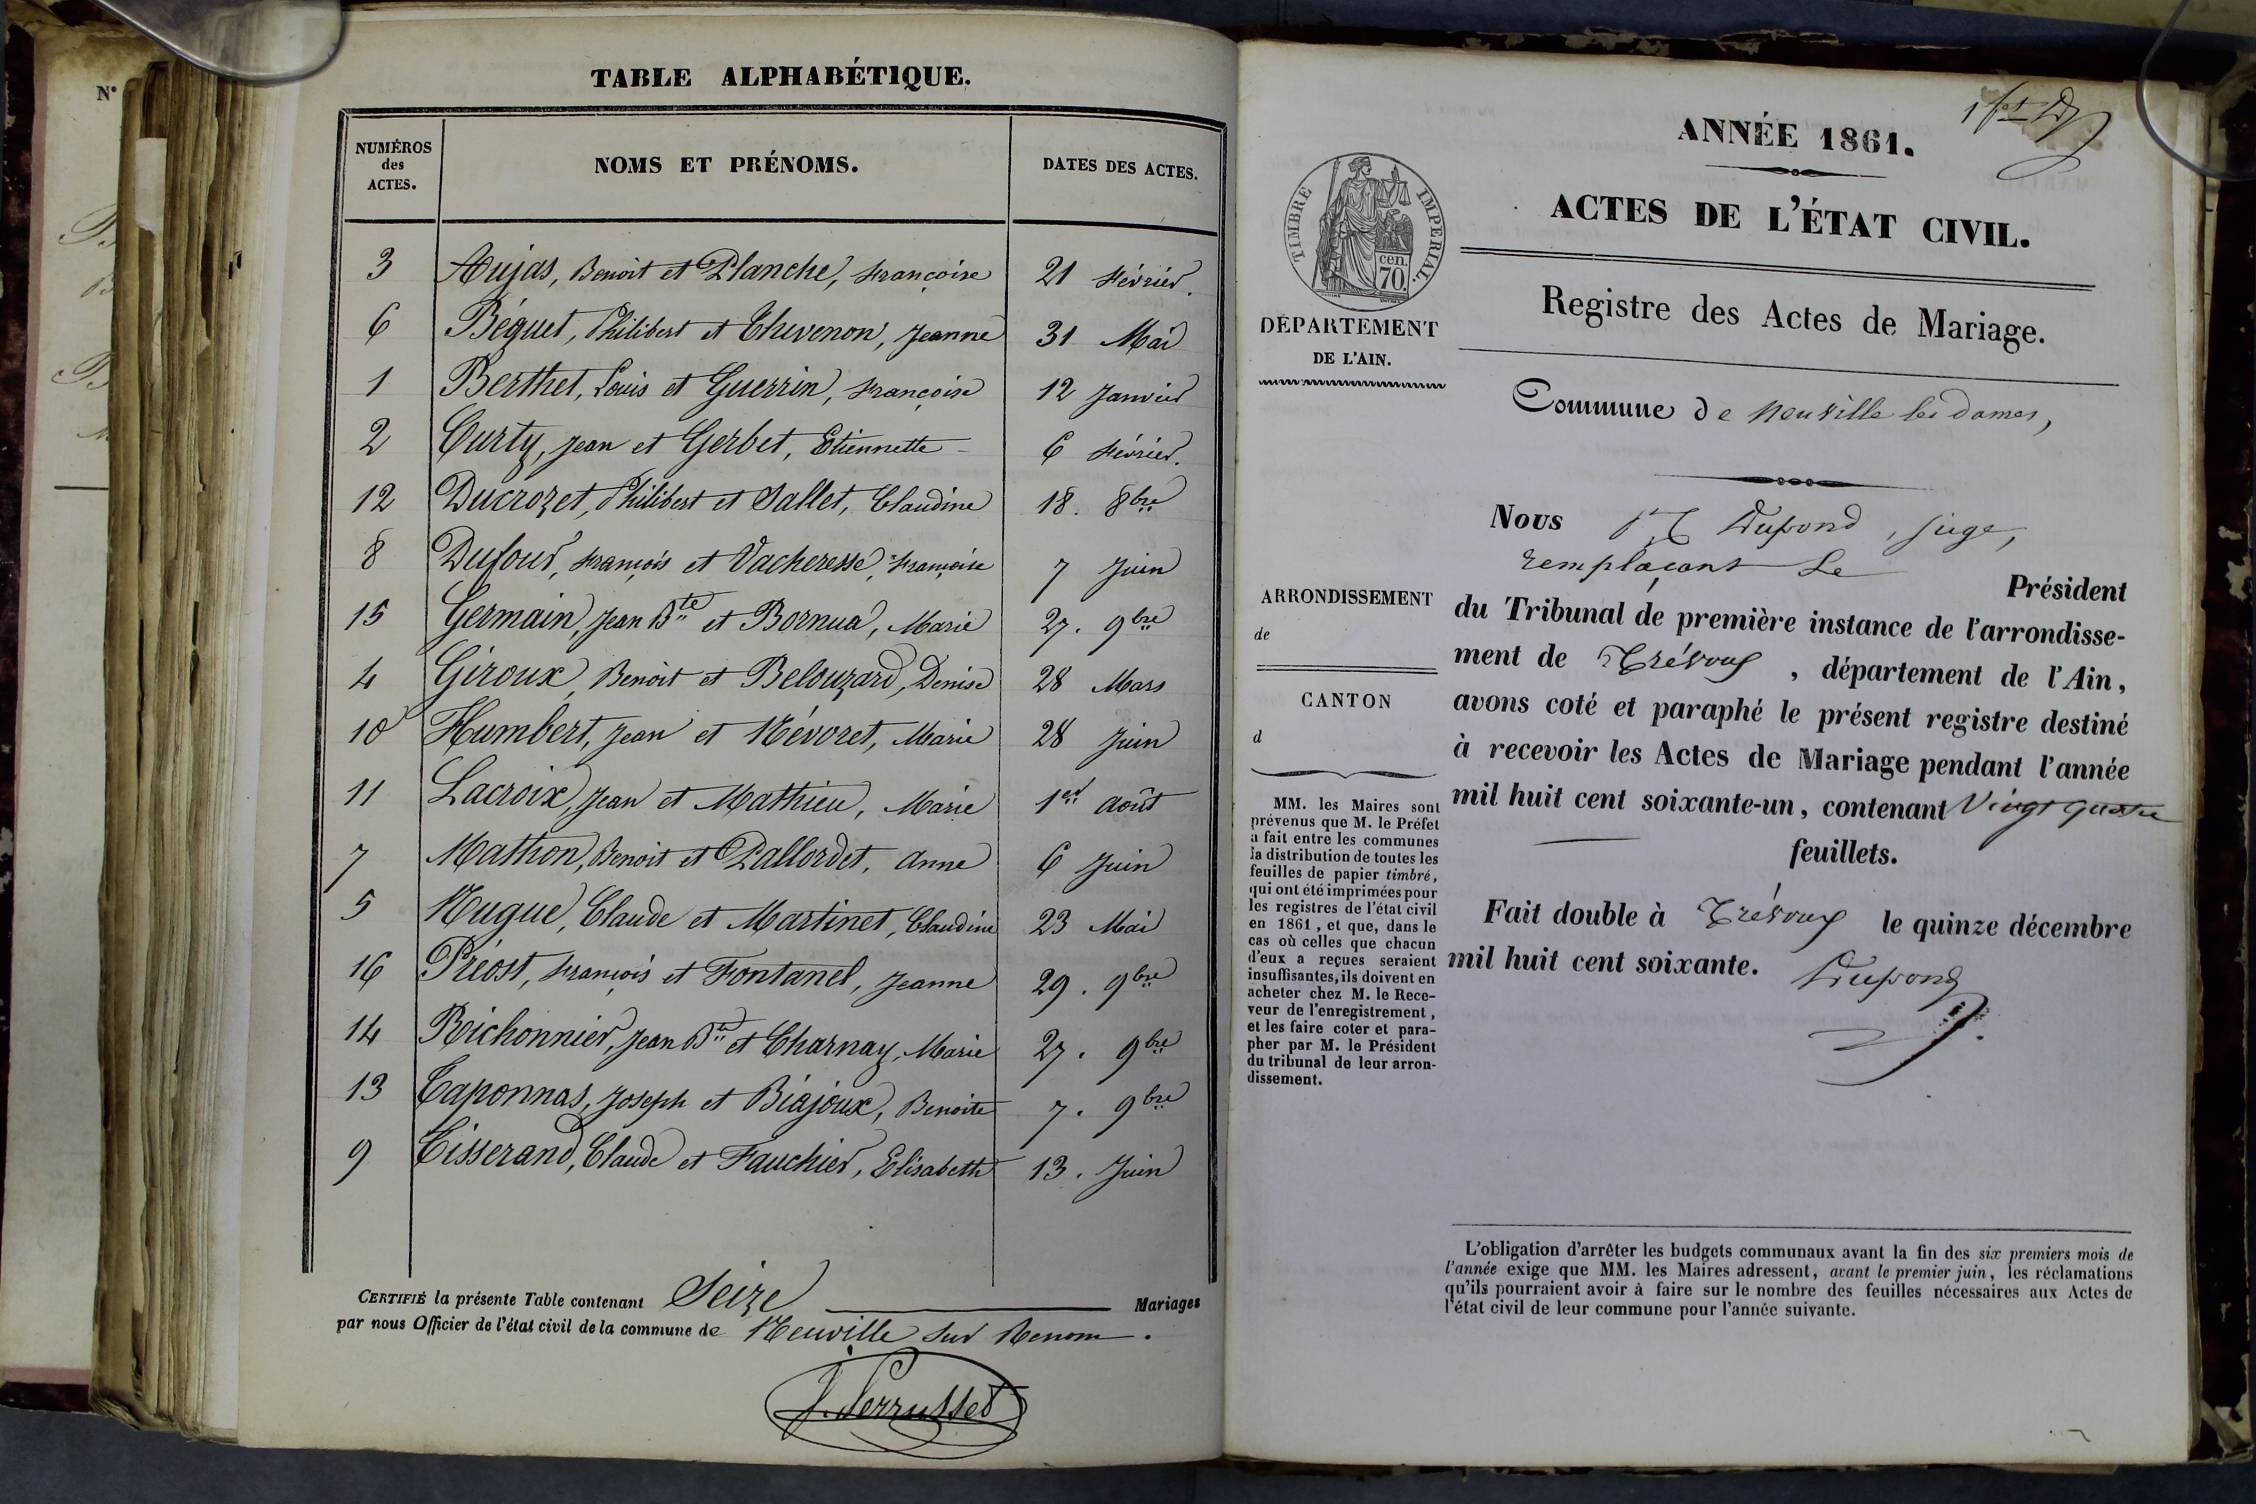 N°
TABLE ALPHABÉTIQUE.
NUMÉROS des ACTES.
NOMS ET PRÉNOMS.
DATES DES ACTES.
3 Aujas, Benoit et Planche, Françoise 21 Février.
6 Béguet, Philibert et Thevenon, Jeanne 31 Mai
1 Berthet, Louis et Guerrin, Françoise 12 Janvier
2 Curty, Jean et Gerbet, Etiennette 6 Février.
12 Ducrozet, Philibert et Sallet, Claudine 18. 8bre
8 Dufour, François et Vacheresse, Françoise 7 Juin
15 Germain, Jean Bte et Bornua, Marie 27. 9bre
4 Giroux, Benoit et Belouzard, Denise 28 Mars
10 Humbert, Jean et Névoret, Marie 28 Juin
11 Lacroix, Jean et Mathieu, Marie 1er août
7 Mathon, Benoit et Pallordet, Anne 6 Juin
5 Nugue, Claude et Martinet, Claudine 23 Mai
16 Préost, François et Fontanel, Jeanne 29. 9bre
14 Richonnier, Jean Bte et Charnay, Marie 27. 9bre
13 Taponnas, Joseph et Biajoux, Benoite 7. 9bre
9 Tisserand, Claude et Fauchier, Elisabeth 13. Juin
CERTIFIÉ la présente Table contenant Seize Mariages
par nous Officier de l'état civil de la commune de Neuville sur Renom.
J. Perrusset
ANNÉE 1861.
ACTES DE L'ÉTAT CIVIL.
TIMBRE IMPÉRIAL.
cen.
70.
DÉPARTEMENT
DE L'AIN.
Registre des Actes de Mariage.
Commune de Neuville les dames,
Nous Dupond, juge,
remplaçant Le Président
du Tribunal de première instance de l'arrondisse-
ment de Trévoux, département de l'Ain,
avons coté et paraphé le présent registre destiné
à recevoir les Actes de Mariage pendant l'année
mil huit cent soixante-un, contenant Vingt quatre
feuillets.
Fait double à Trévoux le quinze décembre
mil huit cent soixante.
Dupond
ARRONDISSEMENT
de
CANTON
d
MM. les Maires sont
prévenus que M. le Préfet
a fait entre les communes
la distribution de toutes les
feuilles de papier timbré,
qui ont été imprimées pour
les registres de l'état civil
en 1861, et que, dans le
cas où celles que chacun
d'eux a reçues seraient
insuffisantes, ils doivent en
acheter chez M. le Rece-
veur de l'enregistrement,
et les faire coter et para-
pher par M. le Président
du tribunal de leur arron-
dissement.
L'obligation d'arrêter les budgets communaux avant la fin des six premiers mois de
l'année exige que MM. les Maires adressent, avant le premier juin, les réclamations
qu'ils pourraient avoir à faire sur le nombre des feuilles nécessaires aux Actes de
l'état civil de leur commune pour l'année suivante.